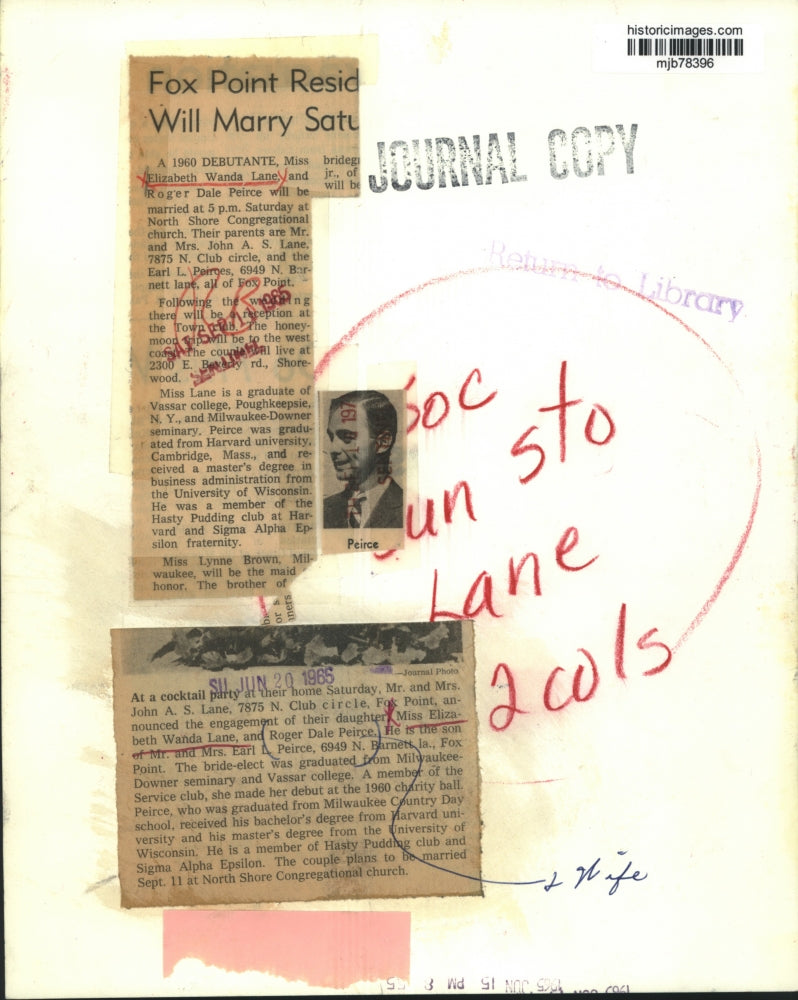 historicimages.com
mjb78396
Fox Point Resid
Will Marry Satu
A 1960 DEBUTANTE, Miss
Elizabeth Wanda Lane, and
Roger Dale Peirce will be
married at 5 p.m. Saturday at
North Shore Congregational
church. Their parents are Mr.
and Mrs. John A. S. Lane,
7875 N. Club circle, and the
Earl L. Peirces, 6949 N. Bar-
nett lane, all of Fox Point.
Following the wedding
there will be a reception at
the Town club. The honey-
moon trip will be to the west
coast. The couple will live at
2300 E. Beverly rd., Shore-
wood.
Miss Lane is a graduate of
Vassar college, Poughkeepsie,
N. Y., and Milwaukee-Downer
seminary. Peirce was gradu-
ated from Harvard university,
Cambridge, Mass., and re-
ceived a master's degree in
business administration from
the University of Wisconsin.
He was a member of the
Hasty Pudding club at Har-
vard and Sigma Alpha Ep-
silon fraternity.
Miss Lynne Brown, Mil-
waukee, will be the maid
honor. The brother of
bridegr
jr., of
will be
JOURNAL COPY
Return to Library
SAT SEP 11 1965
SENTINEL
Peirce
Soc
Sun sto
Lane
2 cols
SU JUN 20 1965
—Journal Photo
At a cocktail party at their home Saturday, Mr. and Mrs.
John A. S. Lane, 7875 N. Club circle, Fox Point, an-
nounced the engagement of their daughter, Miss Eliza-
beth Wanda Lane, and Roger Dale Peirce. He is the son
of Mr. and Mrs. Earl L. Peirce, 6949 N. Barnett la., Fox
Point. The bride-elect was graduated from Milwaukee-
Downer seminary and Vassar college. A member of the
Service club, she made her debut at the 1960 charity ball.
Peirce, who was graduated from Milwaukee Country Day
school, received his bachelor's degree from Harvard uni-
versity and his master's degree from the University of
Wisconsin. He is a member of Hasty Pudding club and
Sigma Alpha Epsilon. The couple plans to be married
Sept. 11 at North Shore Congregational church.
& Wife
1965 JUN 15 PM 8 55